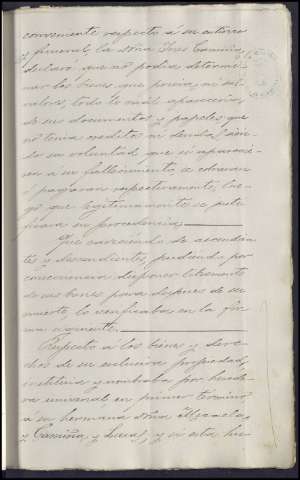 conveniente respecto á su entierro
y funeral, la doña Inés Camiña
declaró que no podía determi-
nar los bienes que poseía, ni sus
valores, todo lo cuál aparecería
de sus documentos y papeles, que
no tenía creditos ni deudas, sien-
do su voluntad que si aparecie-
sen a su fallecimiento, se cobraran
ó pagaran respectivamente, lue-
go que legítimamente se justi-
ficara su procedencia.
Que careciendo de ascendien-
tes y descendientes, pudiendo por
consecuencia disponer libremente
de sus bienes para después de su
muerte, lo verificaba en la for-
ma siguiente.
Respecto á los bienes y dere-
chos de su exclusiva propiedad,
instituía y nombraba por herede-
ra universal, en primer término
á su hermana doña Micaela
y Camiña y Lucas, y si esta hu-